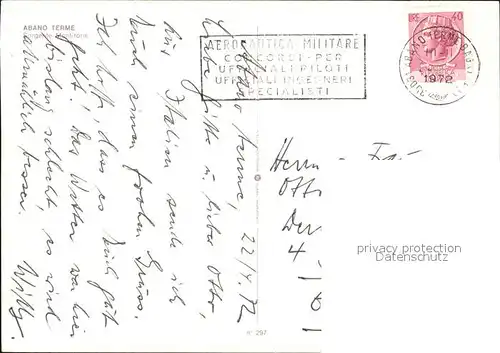 ABANO TERME
AERONAUTICA MILITARE
CONCORSI PER
UFFICIALI PILOTI
UFFICIALI INGEGNERI
SPECIALISTI
LIRE 40
1972
Abano Terme, 22/4.72
Liebe Gitte u. lieber Otto,
Aus Italien sende ich
Euch einen frohen Gruss.
Ich hoffe, dass es Euch gut
geht. Das Wetter war hier
bislang schlecht, es wird
allmählich besser.
Willy.
Herrn - Fr
Otto
Der
4 -
privacy protection
Datenschutz
n° 207